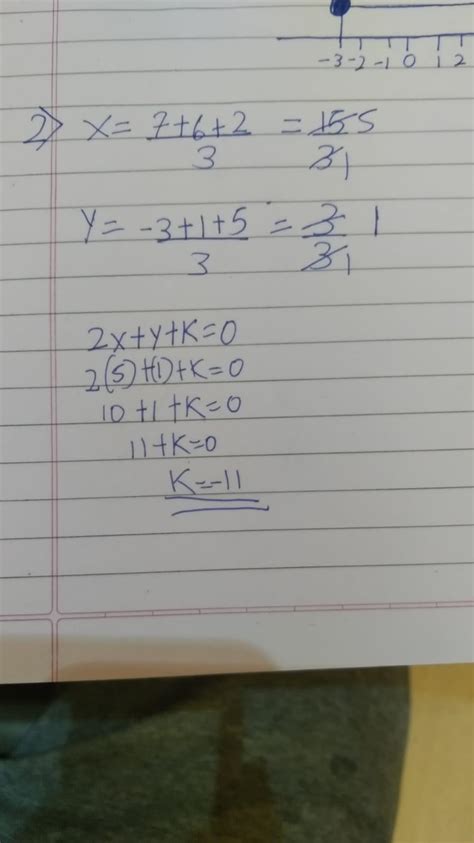 -3 -2 -1 0 1 2
2) x = 7+6+2 / 3 = 15 5 / 3 1
y = -3+1+5 / 3 = 3 1 / 3 1
2x+y+K=0
2(5)+(1)+K=0
10+1+K=0
11+K=0
K=-11